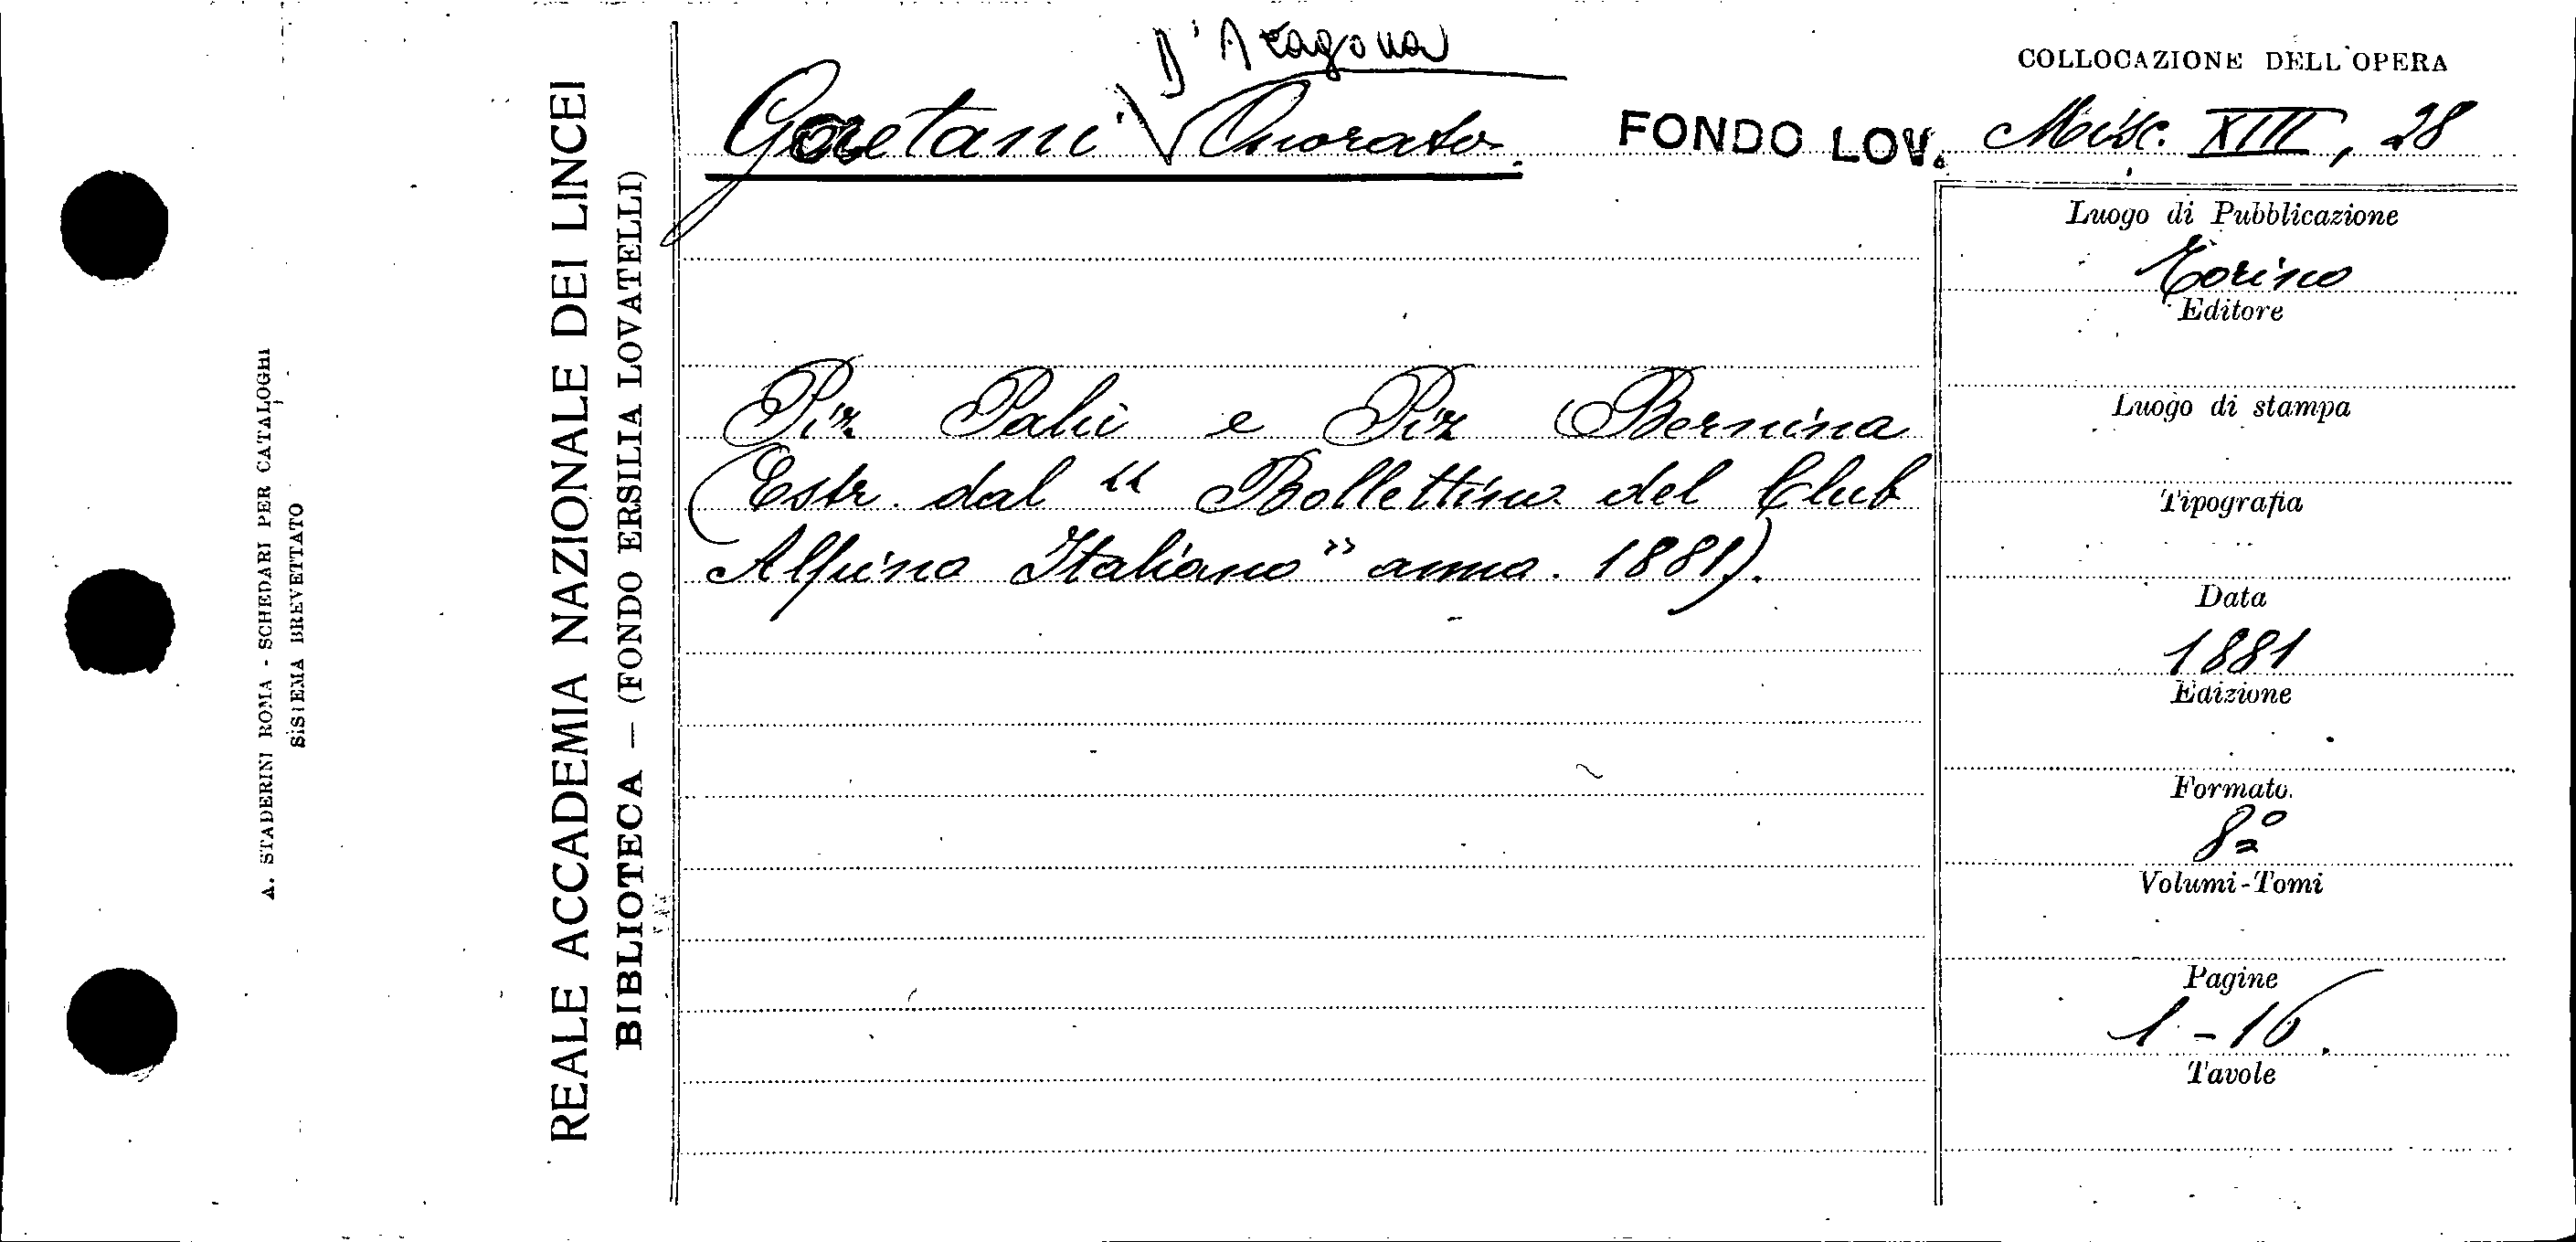 A. STADERINI ROMA - SCHEDARI PER CATALOGHI
SISTEMA BREVETTATO
REALE ACCADEMIA NAZIONALE DEI LINCEI
BIBLIOTECA — (FONDO ERSILIA LOVATELLI)
D'Aragona
Gaetani Onorato.
Piz Palù e Piz Bernina
(Estr. dal “ Bollettino del Club
Alpino Italiano” anno. 1881).
COLLOCAZIONE DELL'OPERA
FONDO LOV. Misc. XIII, 28
Luogo di Pubblicazione
Torino
Editore
Luogo di stampa
Tipografia
Data
1881
Edizione
Formato.
8º
Volumi-Tomi
Pagine
1-16.
Tavole